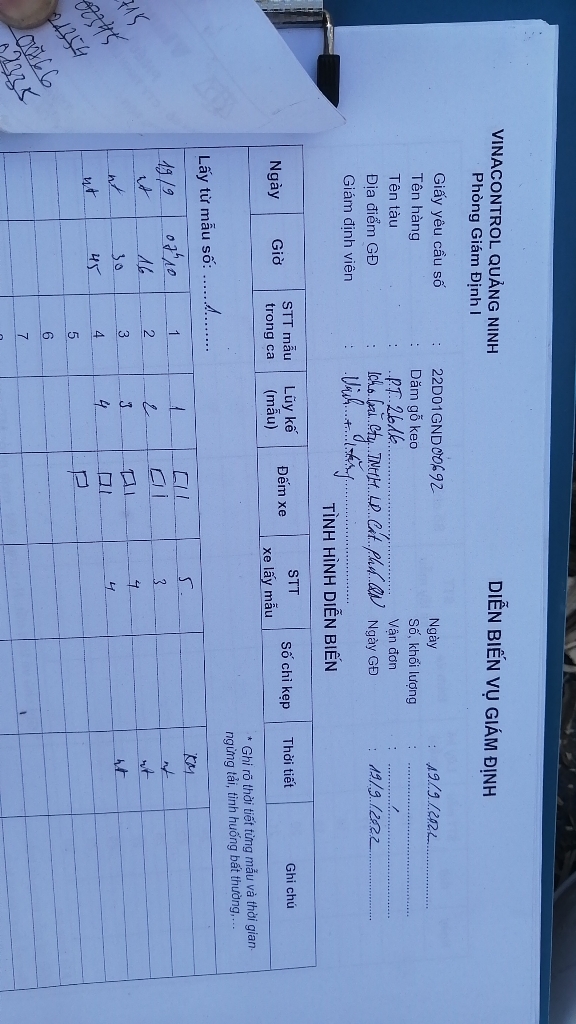 715
00375
01354
00766
02335
VINACONTROL QUẢNG NINH
Phòng Giám Định I
DIỄN BIẾN VỤ GIÁM ĐỊNH
Giấy yêu cầu số : 22D01GND00692 Ngày : 19/9/2022
Tên hàng : Dăm gỗ keo Số, khối lượng :
Tên tàu : PT 2616 Vận đơn :
Địa điểm GĐ : Kho bãi Cty TNHH LD Ngày GĐ : 19/9/2022
Giám định viên :
TÌNH HÌNH DIỄN BIẾN
Lấy từ mẫu số: ....1....
* Ghi rõ thời tiết từng mẫu và thời gian
ngừng tải, tình huống bất thường,...
Ngày Giờ STT mẫu trong ca Lũy kế (mẫu) Đếm xe STT xe lấy mẫu Số chì kẹp Thời tiết Ghi chú
19/9 07h10 1 1 5 KM
nt 16 2 2 3 nt
nt 30 3 3 4 nt
nt 45 4 4 4 nt
5
6
7